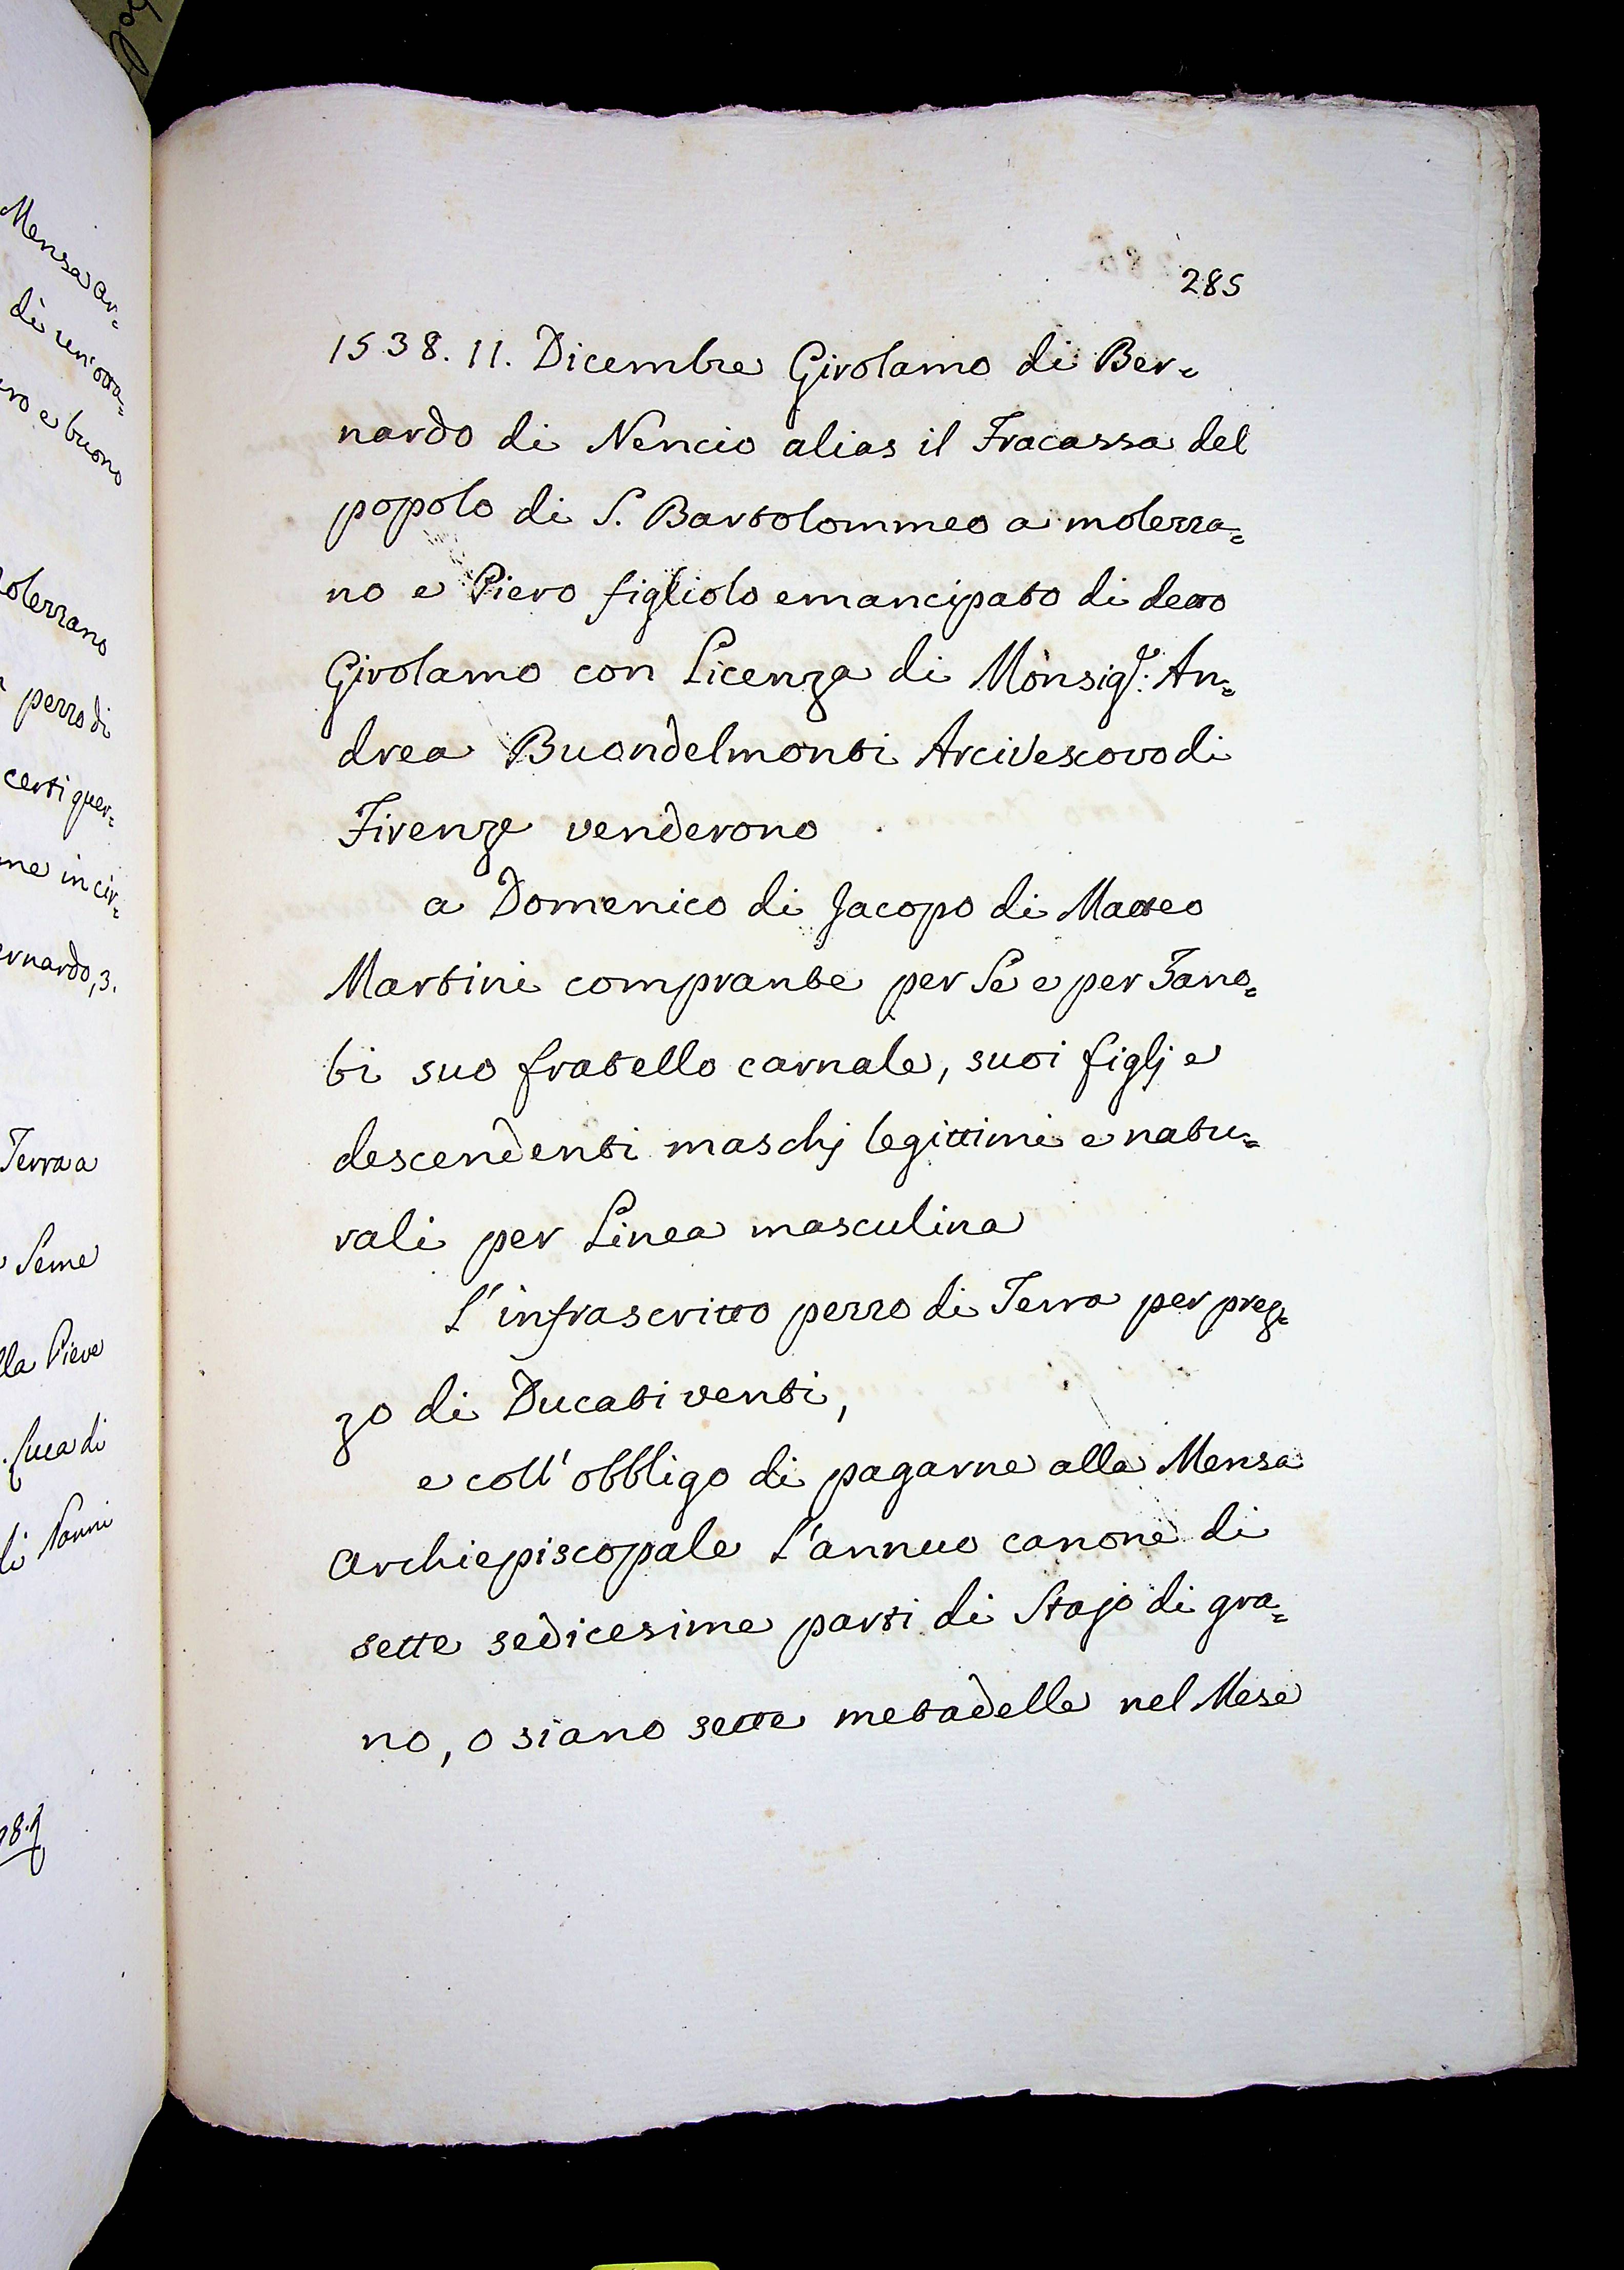 285
1538. 11. Dicembre Girolamo di Ber=
nardo di Nencio alias il Fracassa del
popolo di S. Bartolommeo a molezza=
no e Piero figliolo emancipato di detto
Girolamo con Licenza di Monsigr: An=
drea Buondelmonti Arcivescovo di
Firenze venderono
a Domenico di Jacopo di Matteo
Martini comprante per Se e per Zano=
bi suo fratello carnale, suoi figlj e
descendenti maschj legittimi e natu=
rali per Linea masculina
L'infrascritto pezzo di Terra per prez=
zo di Ducati venti,
e coll' obbligo di pagarne alla Mensa
Archiepiscopale L'annuo canone di
sette sedicesime parti di Stajo di gra=
no, o siano sette metadelle nel Mese
Mensa Ar=
di un'otta=
e buono
olezzano
pezzo di
certi quer=
me in cir=
ernardo, 3.
Terra a
Seme
lla Pieve
Luca di
di Nanni